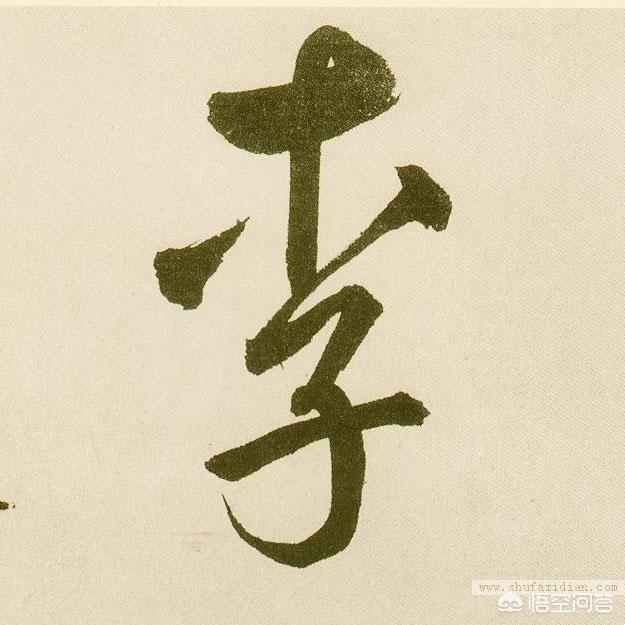 李
www.shufazidian.com
悟空问答